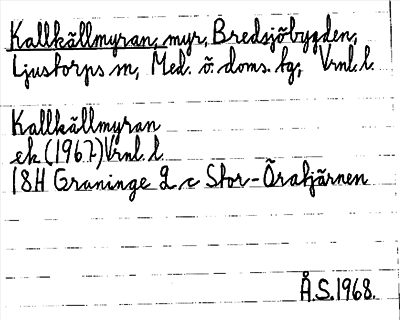 Kallkällmyran, myr, Bredsjöbygden,
Ljustorps sn, Med. ö. doms. tg, Vrnl. l.
Kallkällmyran
ek (1967) Vrnl. l.
18H Graninge 2 c Stor-Öratjärnen
Å.S. 1968.